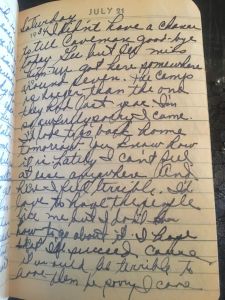 JULY 21
Saturday
1945 I didn't have a chance
to tell Caroline good-bye
today Gee but I'll miss
her. We got here somewhere
around seven. The camp
is larger than the one
they had last year. I'm
awfully sorry I came.
I hope to go back home
tomorrow. You know how
it is. Lately I can't feel
at ease anywhere. And
here I feel terrible. I'd
love to have the people
like me but I don't
how to go about it. I hope
that I'll succeed, cause
it would be terrible to
have them be sorry I came